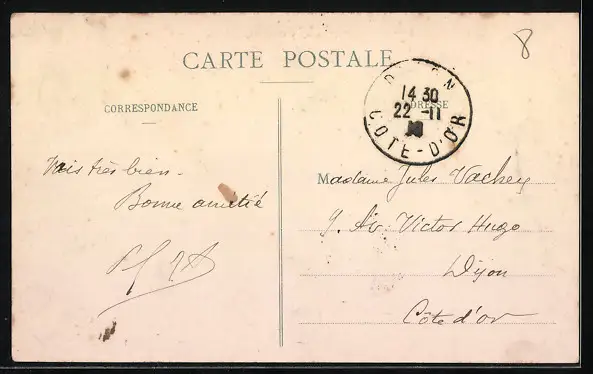 8
CARTE POSTALE
CORRESPONDANCE
ADRESSE
14 30
22 -11
CÔTE-D'OR
très bien.
Bonne amitié
Madame Jules Vachey
9. Av. Victor Hugo
Dijon
Côte d'or